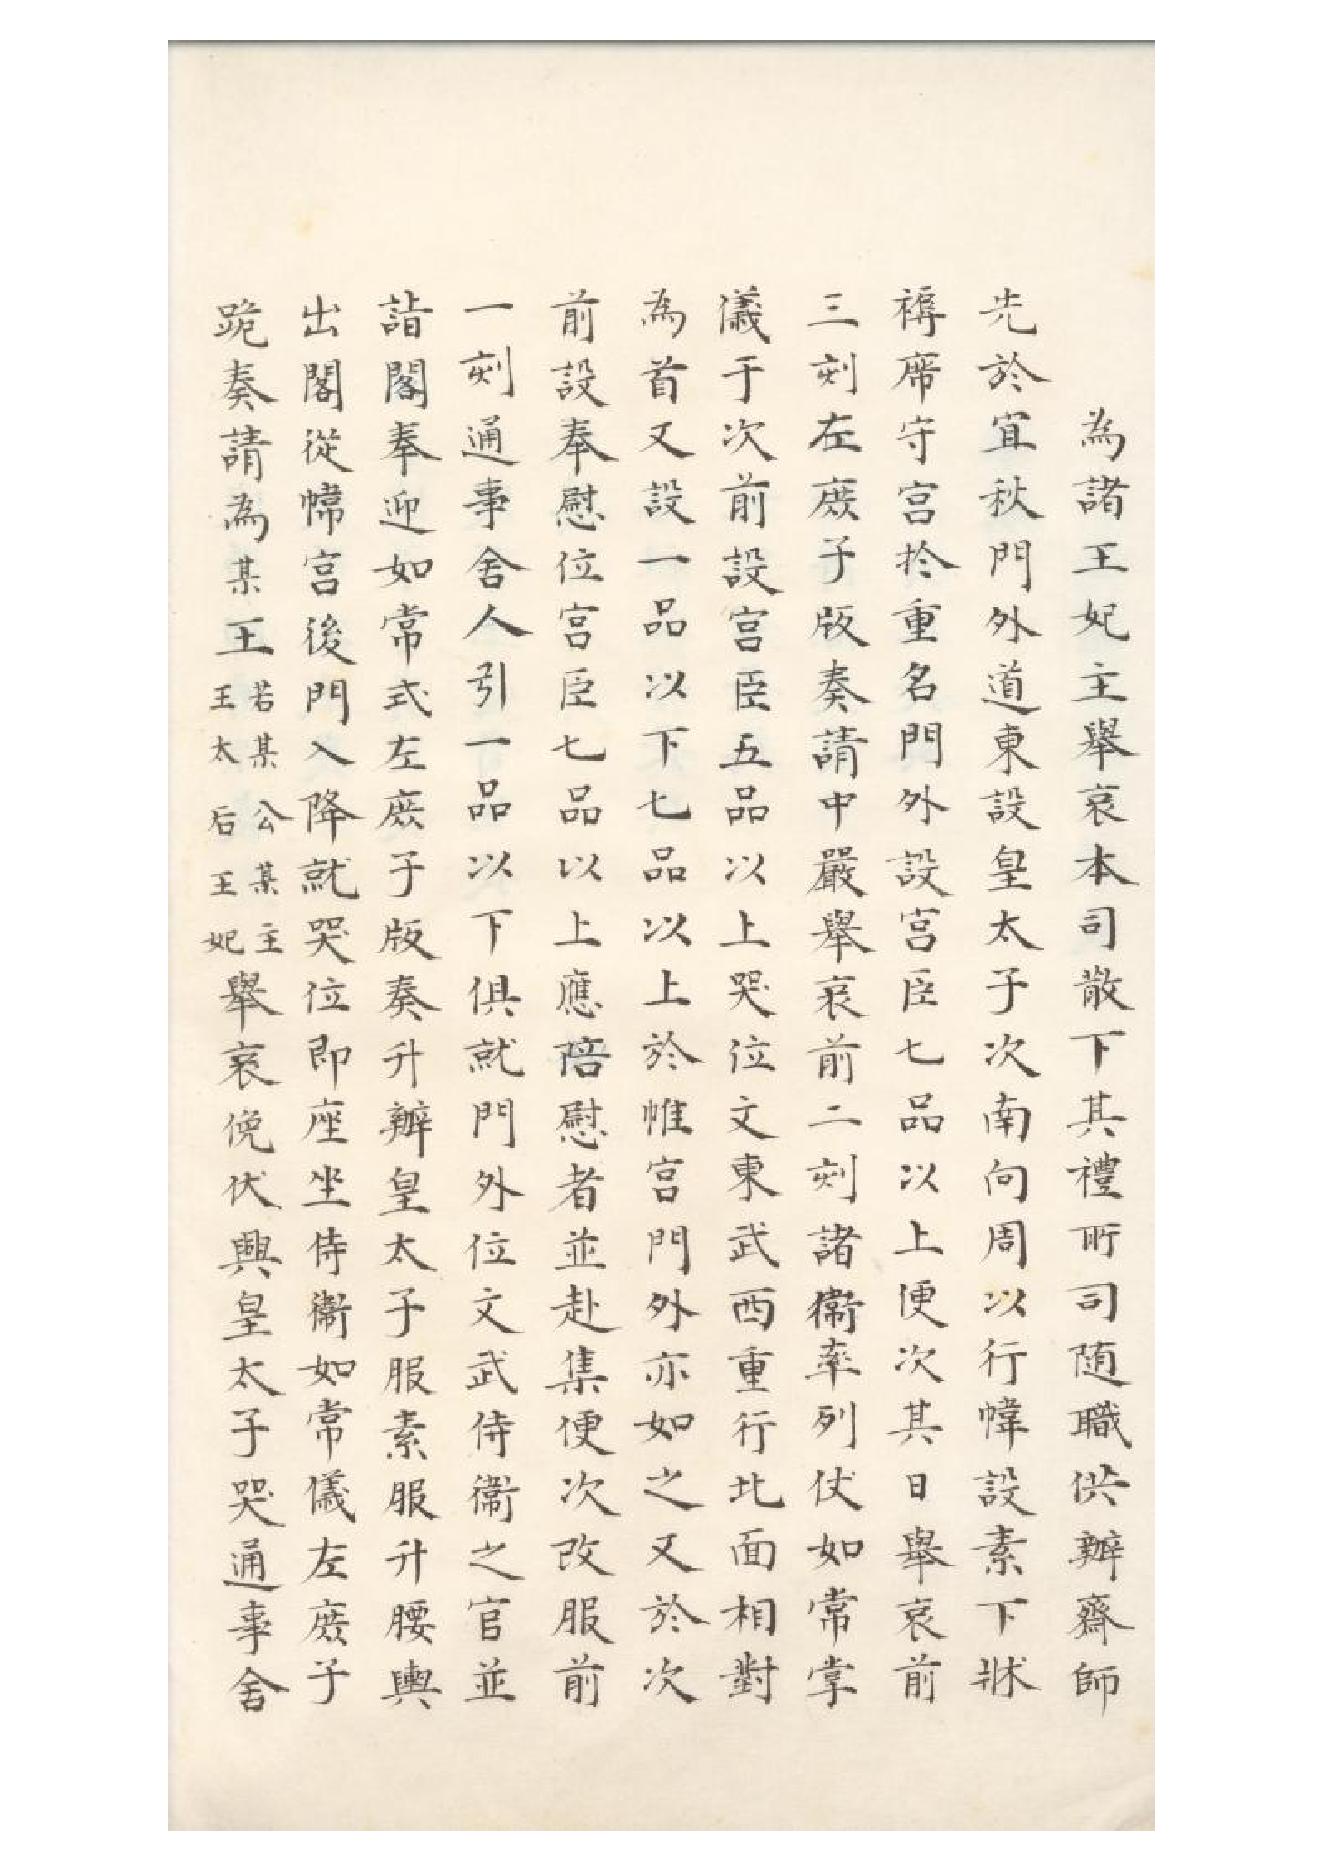 為諸王妃主舉哀本司散下其禮所司随職供辦齋師
先於宜秋門外道東設皇太子次南向周以行幃設素下牀
褥席守宫扵重名門外設宫臣七品以上便次其日舉哀前
三刻左庶子版奏請中嚴舉哀前二刻諸衞率列仗如常掌
儀于次前設宫臣五品以上哭位文東武西重行北面相對
為首又設一品以下七品以上於帷宫門外亦如之又於次
前設奉慰位宫臣七品以上應陪慰者並赴集便次改服前
一刻通事舍人引一品以下俱就門外位文武侍衞之官並
詣閤奉迎如常式左庶子版奏升辦皇太子服素服升腰輿
出閤從幃宫後門入降就哭位即座坐侍衞如常儀左庶子
跪奏請為某王若某公某主王太后王妃舉哀俛伏興皇太子哭通事舍